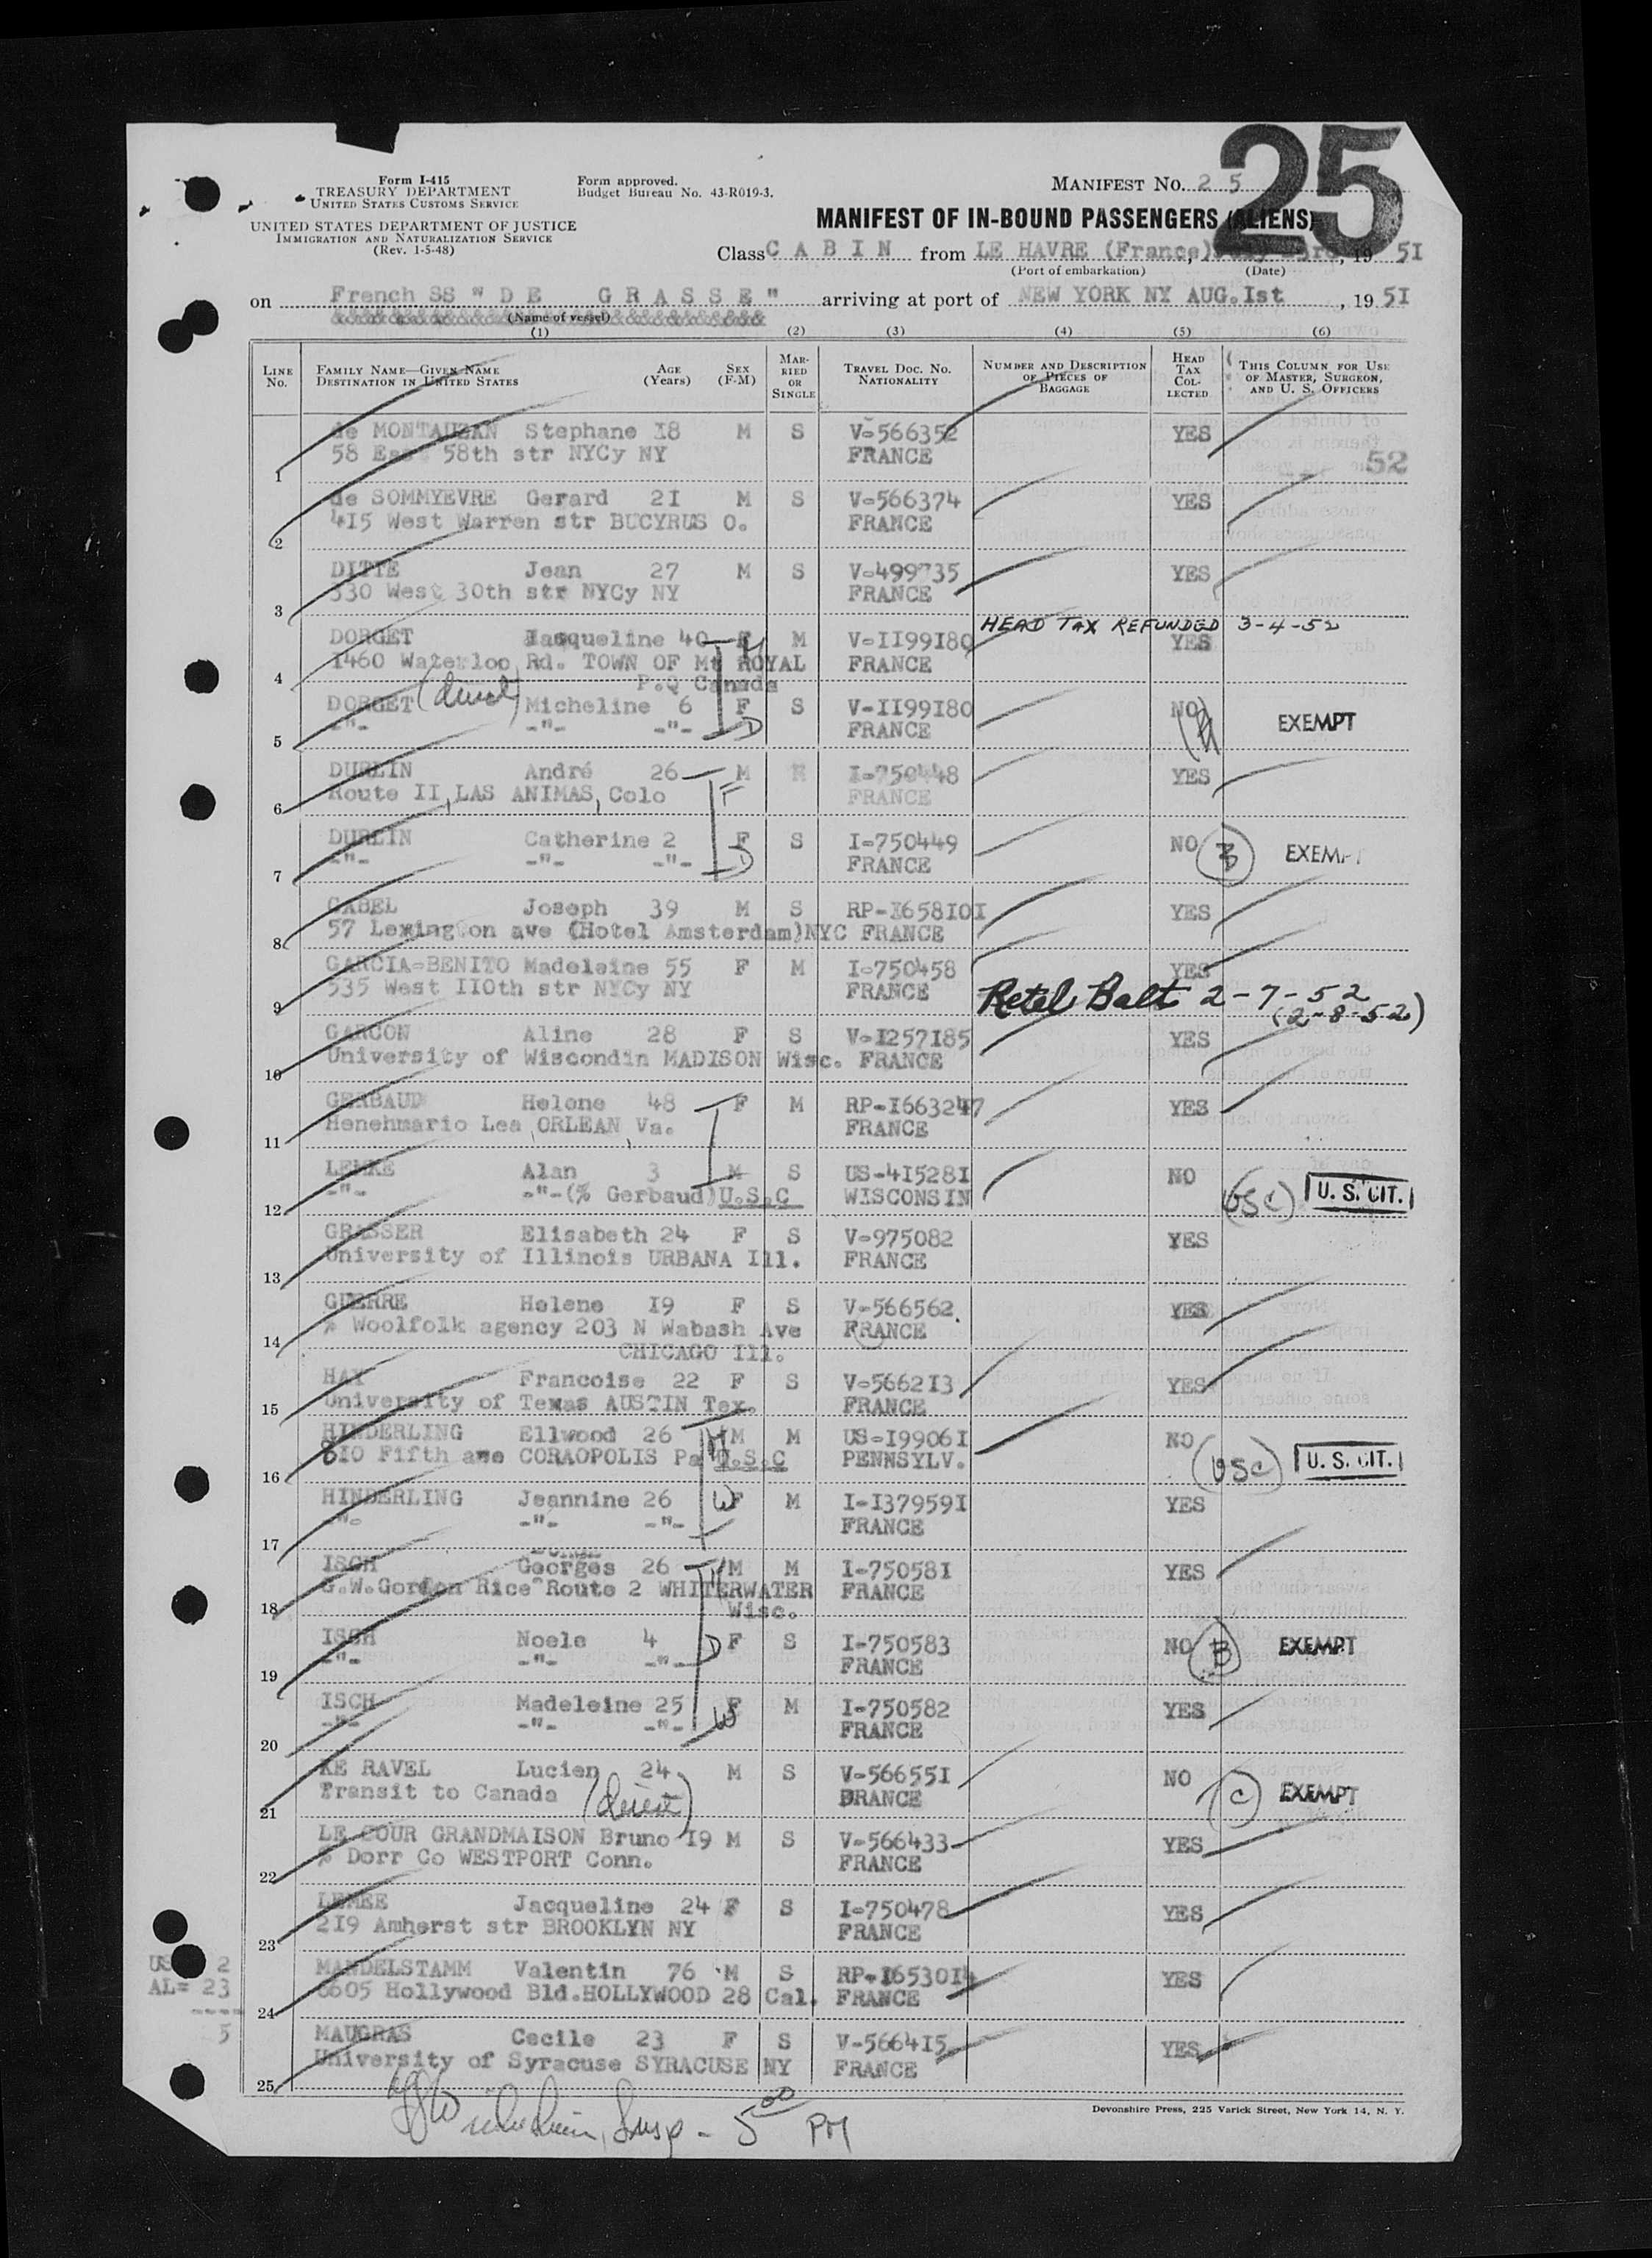 25
Form I-415
TREASURY DEPARTMENT
UNITED STATES CUSTOMS SERVICE
UNITED STATES DEPARTMENT OF JUSTICE
IMMIGRATION AND NATURALIZATION SERVICE
(Rev. 1-5-48)
Form approved.
Budget Bureau No. 43-R019-3.
MANIFEST NO. 2 5
MANIFEST OF IN-BOUND PASSENGERS (ALIENS)
Class C A B I N from LE HAVRE (France), 19 51
(Port of embarkation) (Date)
on French SS "DE GRASSE" arriving at port of NEW YORK NY AUG.Ist, 19 51
(Name of vessel)
(1) (2) (3) (4) (5) (6)
LINE No. FAMILY NAME—GIVEN NAME DESTINATION IN UNITED STATES AGE (Years) SEX (F-M) MARRIED OR SINGLE TRAVEL DOC. NO. NATIONALITY NUMBER AND DESCRIPTION OF PIECES OF BAGGAGE HEAD TAX COLLECTED THIS COLUMN FOR USE OF MASTER, SURGEON, AND U. S. OFFICERS
de MONTAUZAN Stephane I8 M S V-566352 YES
58 East 58th str NYCy NY FRANCE 52
1
de SOMMYEVRE Gerard 2I M S V-566374 YES
415 West Warren str BUCYRUS O. FRANCE
2
DITTE Jean 27 M S V-499735 YES
330 West 30th str NYCy NY FRANCE
3
HEAD TAX REFUNDED 3-4-52
DORGET Jacqueline 40 F M V-II99I80 YES
I460 Waterloo Rd. TOWN OF Mt ROYAL FRANCE
4 P.Q Canada
DORGET Micheline 6 F S V-II99I80 NO EXEMPT
-"- -"- -"- D FRANCE
5
DURLIN André 26 M I-750448 YES
Route II, LAS ANIMAS, Colo FRANCE
6
DURLIN Catherine 2 F S I-750449 NO B EXEMPT
-"- -"- -"- D FRANCE
7
GABEL Joseph 39 M S RP-I658I0I YES
57 Lexington ave (Hotel Amsterdam)NYC FRANCE
8
GARCIA-BENITO Madeleine 55 F M I-750458 YES
535 West II0th str NYCy NY FRANCE
9 Retel Balt 2-7-52
(2-8-52)
GARCON Aline 28 F S V-I257I85 YES
University of Wiscondin MADISON Wisc. FRANCE
10
GERBAUD Helene 48 F M RP-I663247 YES
Henehmario Lea, ORLEAN, Va. FRANCE
11
LEMKE Alan 3 M S US-4I528I NO
-"- -"-(% Gerbaud)U.S.C WISCONSIN (USC) U. S. CIT.
12
GRASSER Elisabeth 24 F S V-975082 YES
University of Illinois URBANA Ill. FRANCE
13
GUERRE Helene I9 F S V-566562. YES
% Woolfolk agency 203 N Wabash Ave FRANCE
14 CHICAGO Ill.
HAY Francoise 22 F S V-5662I3 YES
University of Texas AUSTIN Tex. FRANCE
15
HINDERLING Ellwood 26 M M US-I9906I NO
8I0 Fifth ave CORAOPOLIS Pa U.S.C PENNSYLV. (USC) U. S. CIT.
16
HINDERLING Jeannine 26 W F M I-I37959I YES
-"- -"- -"- FRANCE
17
ISCH Georges 26 M M I-75058I YES
G.W.Gordon Rice Route 2 WHITERWATER FRANCE
18 Wisc.
ISCH Noele 4 D F S I-750583 NO B EXEMPT
-"- -"- -"- FRANCE
19
ISCH Madeleine 25 F M I-750582 YES
-"- -"- -"- W FRANCE
20
KE RAVEL Lucien 24 M S V-56655I NO (C) EXEMPT
Transit to Canada (direct) FRANCE
21
LE COUR GRANDMAISON Bruno I9 M S V-566433 YES
% Dorr Co WESTPORT Conn. FRANCE
22
LEMEE Jacqueline 24 F S I-750478 YES
2I9 Amherst str BROOKLYN NY FRANCE
23
US 2
MANDELSTAMM Valentin 76 M S RP-I6530I4 YES
AL= 23
6605 Hollywood Bld.HOLLYWOOD 28 Cal. FRANCE
24
5
MAUGRAS Cecile 23 F S V-5664I5 YES
University of Syracuse SYRACUSE NY FRANCE
25
Insp - 5 00 PM
Devonshire Press, 225 Varick Street, New York 14, N. Y.